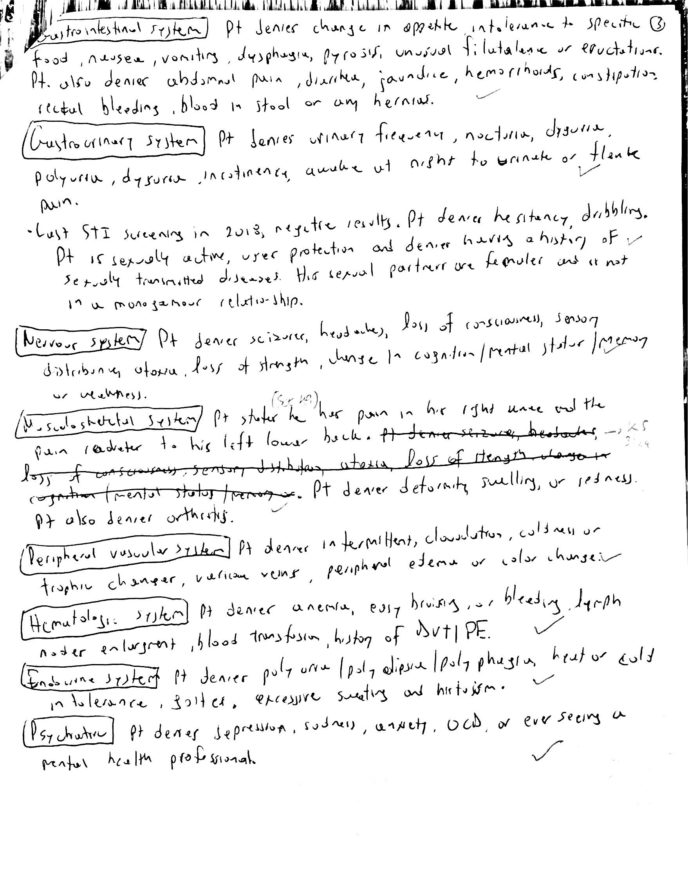 Gastrointestinal System Pt denies change in appetite, intolerance to specific ③
food, nausea, vomiting, dysphagia, pyrosis, unusual filutalence or eructations.
Pt. also denies abdomnal pain, diarrhea, jaundice, hemorrhoids, constipation,
rectal bleeding, blood in stool or any hernias.
Gastrourinary System Pt denies urinary frequency, nocturia, dysuria,
polyuria, dysuria, incotinence, awake at night to urinate or flank
pain.
• Last STI screening in 2018, negative results. Pt denies hesitancy, dribbling.
Pt is sexually active, uses protection and denies having a history of
sexually transmitted diseases. His sexual partners are females and is not
in a monogamous relationship.
Nervous system Pt denies seizures, headaches, loss of consciousness, sensory
distribances, ataxia, loss of strength, change in cognition/mental status/memory
or weakness.
Musculoskeletal System Pt states he has pain in his right knee and the
pain radiates to his left lower back. Pt denies seizures, headaches,
loss of consciousness, sensory distribution, ataxia, loss of strength, change in
cognition/mental status/memory or. Pt denies deformity, swelling, or redness.
Pt also denies arthritis.
Peripheral vascular system Pt denies intermittent, claudication, coldness or
trophic changes, varicose veins, peripheral edema or color changes.
Hematologic System Pt denies anemia, easy bruising, or bleeding, lymph
nodes enlargment, blood transfusion, history of DVT/PE.
Endocrine System Pt denies polyuria/polydipsia/polyphagia, heat or cold
intolerance, goiter, excessive sweating and hirtuism.
Psychiatric Pt denies depression, sadness, anxiety, OCD, or ever seeing a
mental health professional.